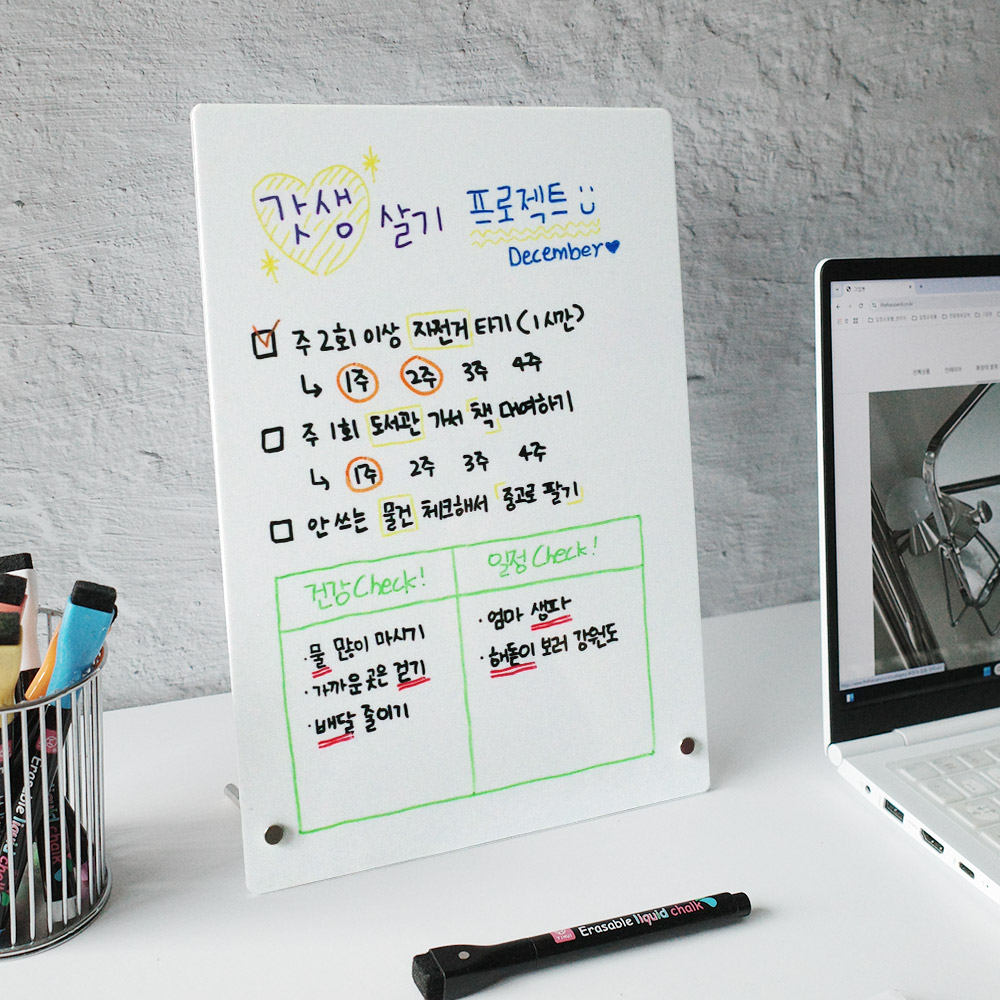 갓생 살기 프로젝트
December
주 2회 이상 자전거 타기 (1시간)
1주 2주 3주 4주
주 1회 도서관 가서 책 대여하기
1주 2주 3주 4주
안 쓰는 물건 체크해서 중고로 팔기
건강 Check!
· 물 많이 마시기
· 가까운 곳은 걷기
· 배달 줄이기
일정 Check!
· 엄마 생파
· 해돋이 보러 강원도
Erasable liquid chalk
Erasable liquid chalk